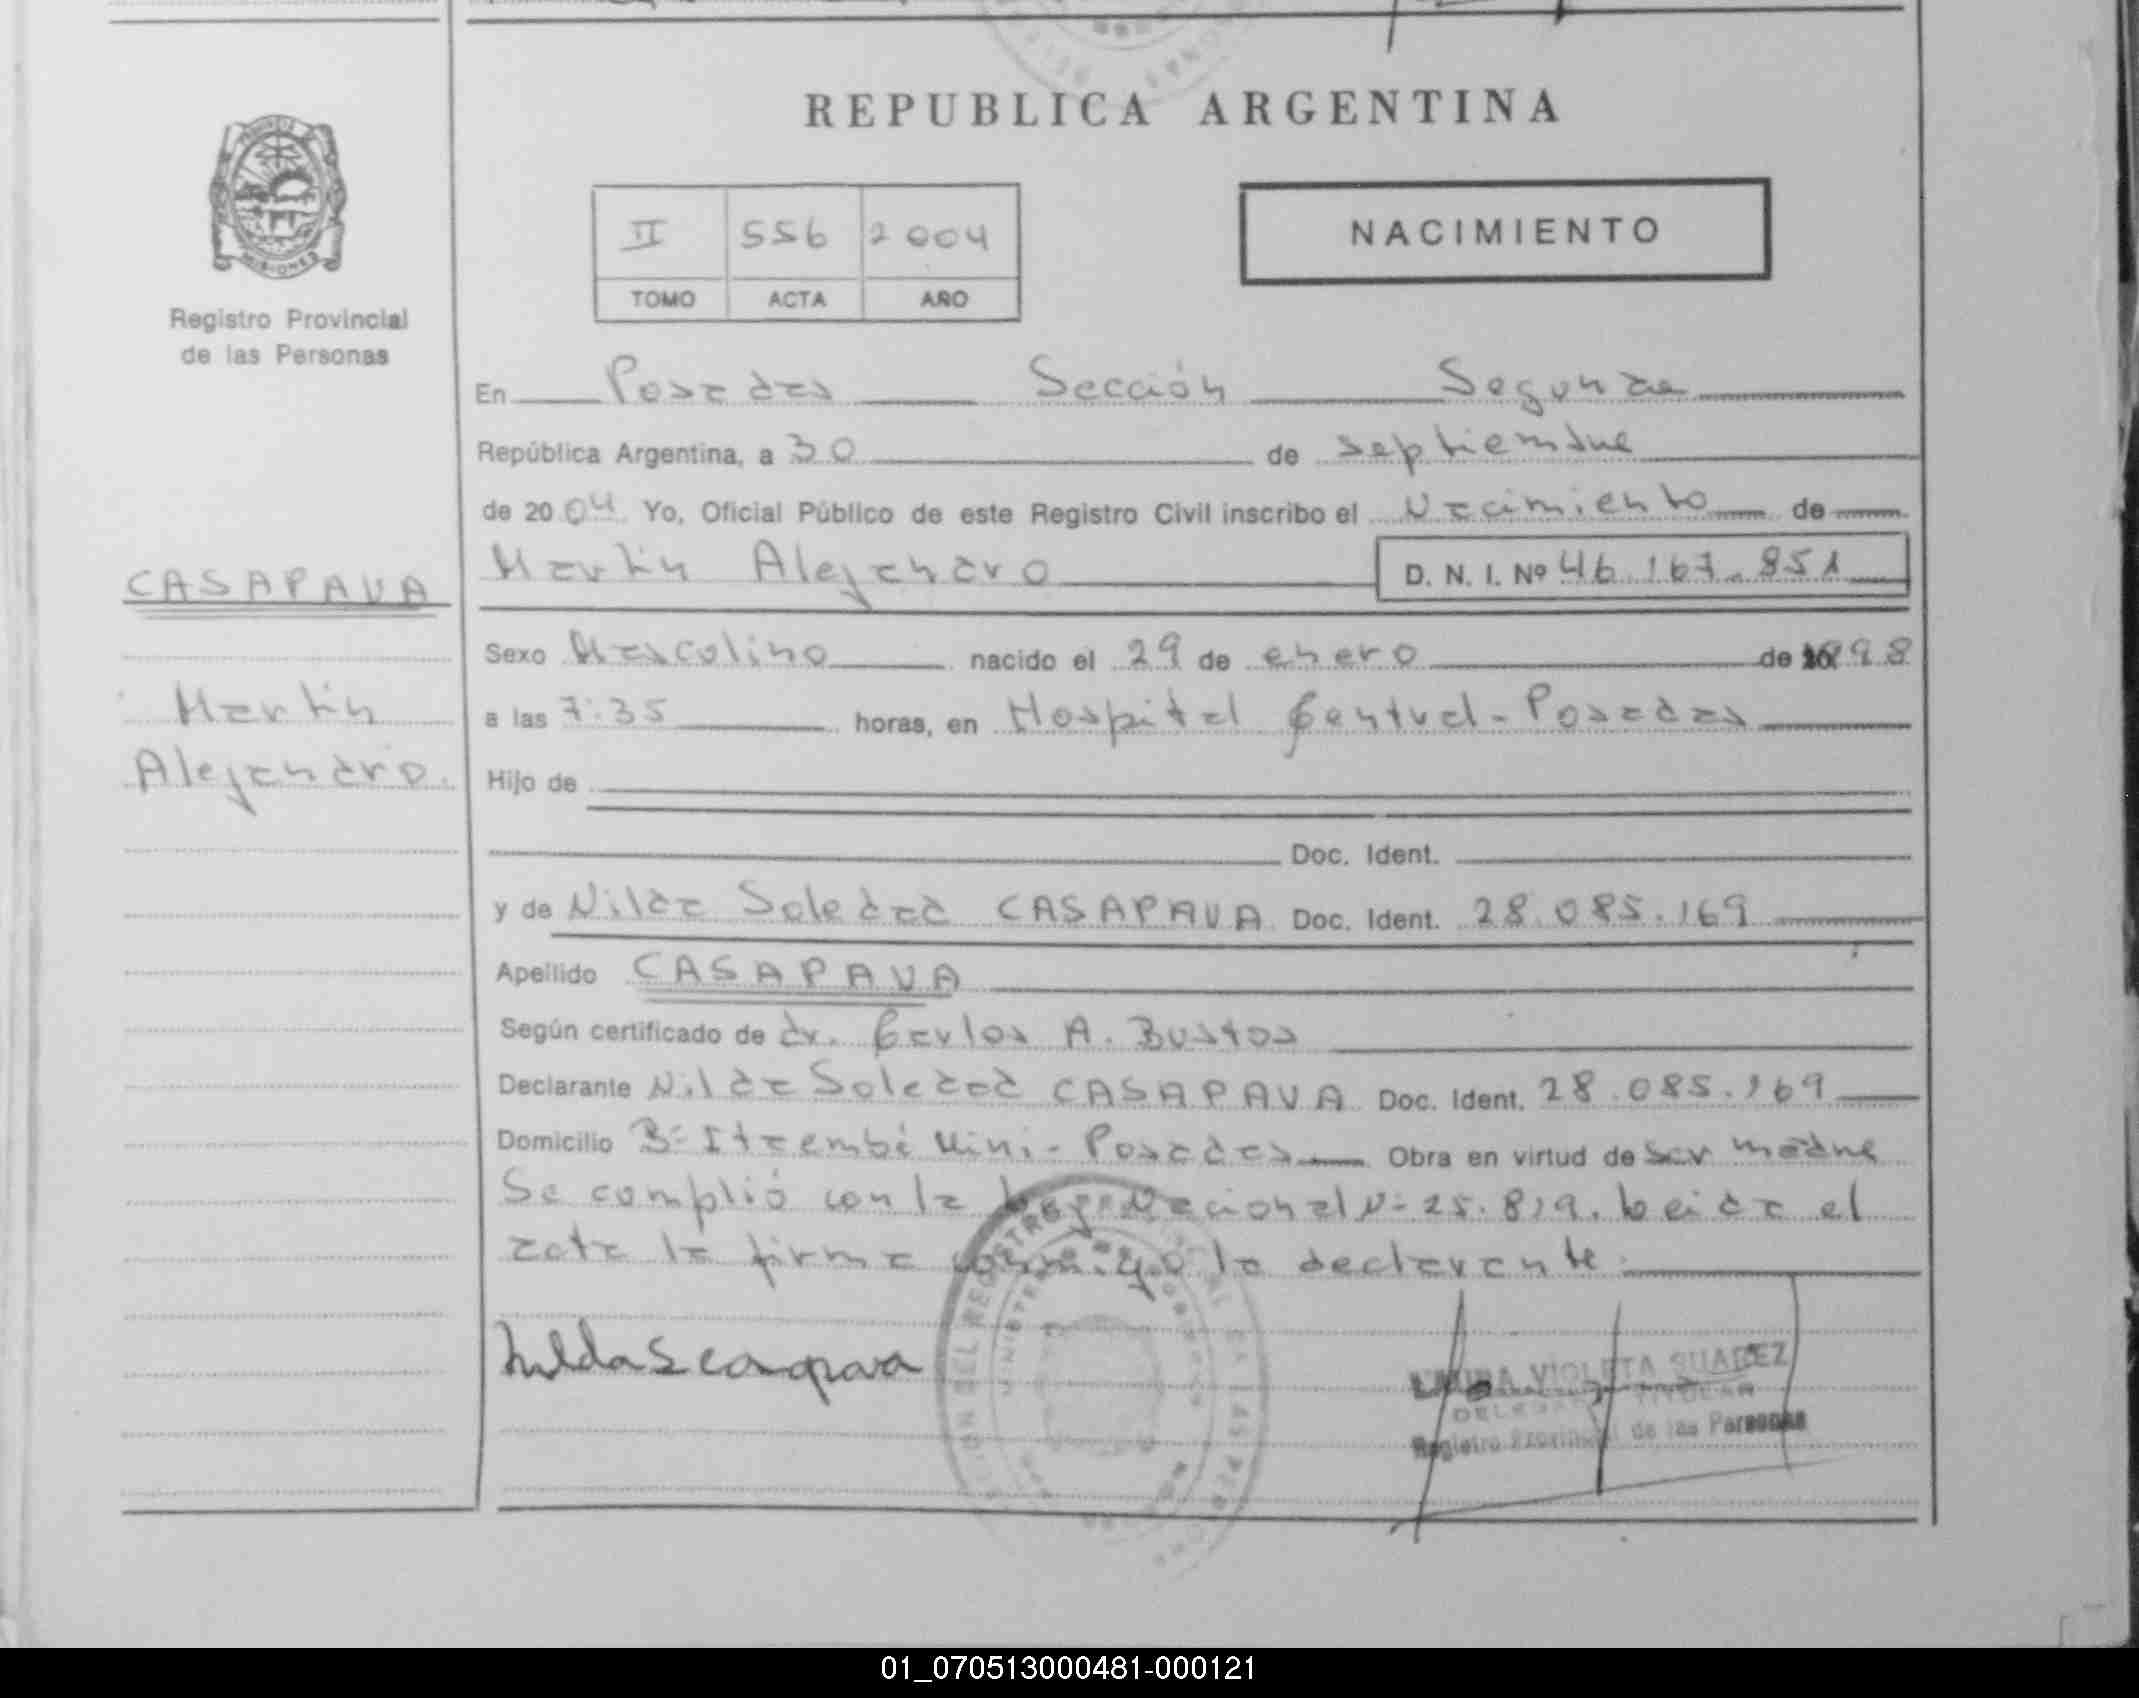 REPUBLICA ARGENTINA
MISIONES
Registro Provincial
de las Personas
II 556 2004
TOMO ACTA AÑO
NACIMIENTO
En Posadas Sección Segunda
República Argentina, a 30 de septiembre
de 2004 Yo, Oficial Público de este Registro Civil inscribo el Nacimiento de
CASAPAVA
Martin Alejandro D. N. I. Nº 46.167.851
Sexo Masculino nacido el 29 de enero de 1998
Martin
a las 7:35 horas, en Hospital Central - Posadas
Alejandro.
Hijo de
Doc. Ident.
y de Nilda Soledad CASAPAVA Doc. Ident. 28.085.169
Apellido CASAPAVA
Según certificado de dr. Carlos A. Bustos
Declarante Nilda Soledad CASAPAVA Doc. Ident. 28.085.169
Domicilio Bº Itaembé Mini - Posadas Obra en virtud de ser madre
Se cumplió con la Ley Nacional Nº 25.819. Leida el
acta la firma conmigo la declarante.
LAURA VIOLETA SUAREZ
DELEGADA TITULAR
Registro Provincial de las Personas
01_070513000481-000121